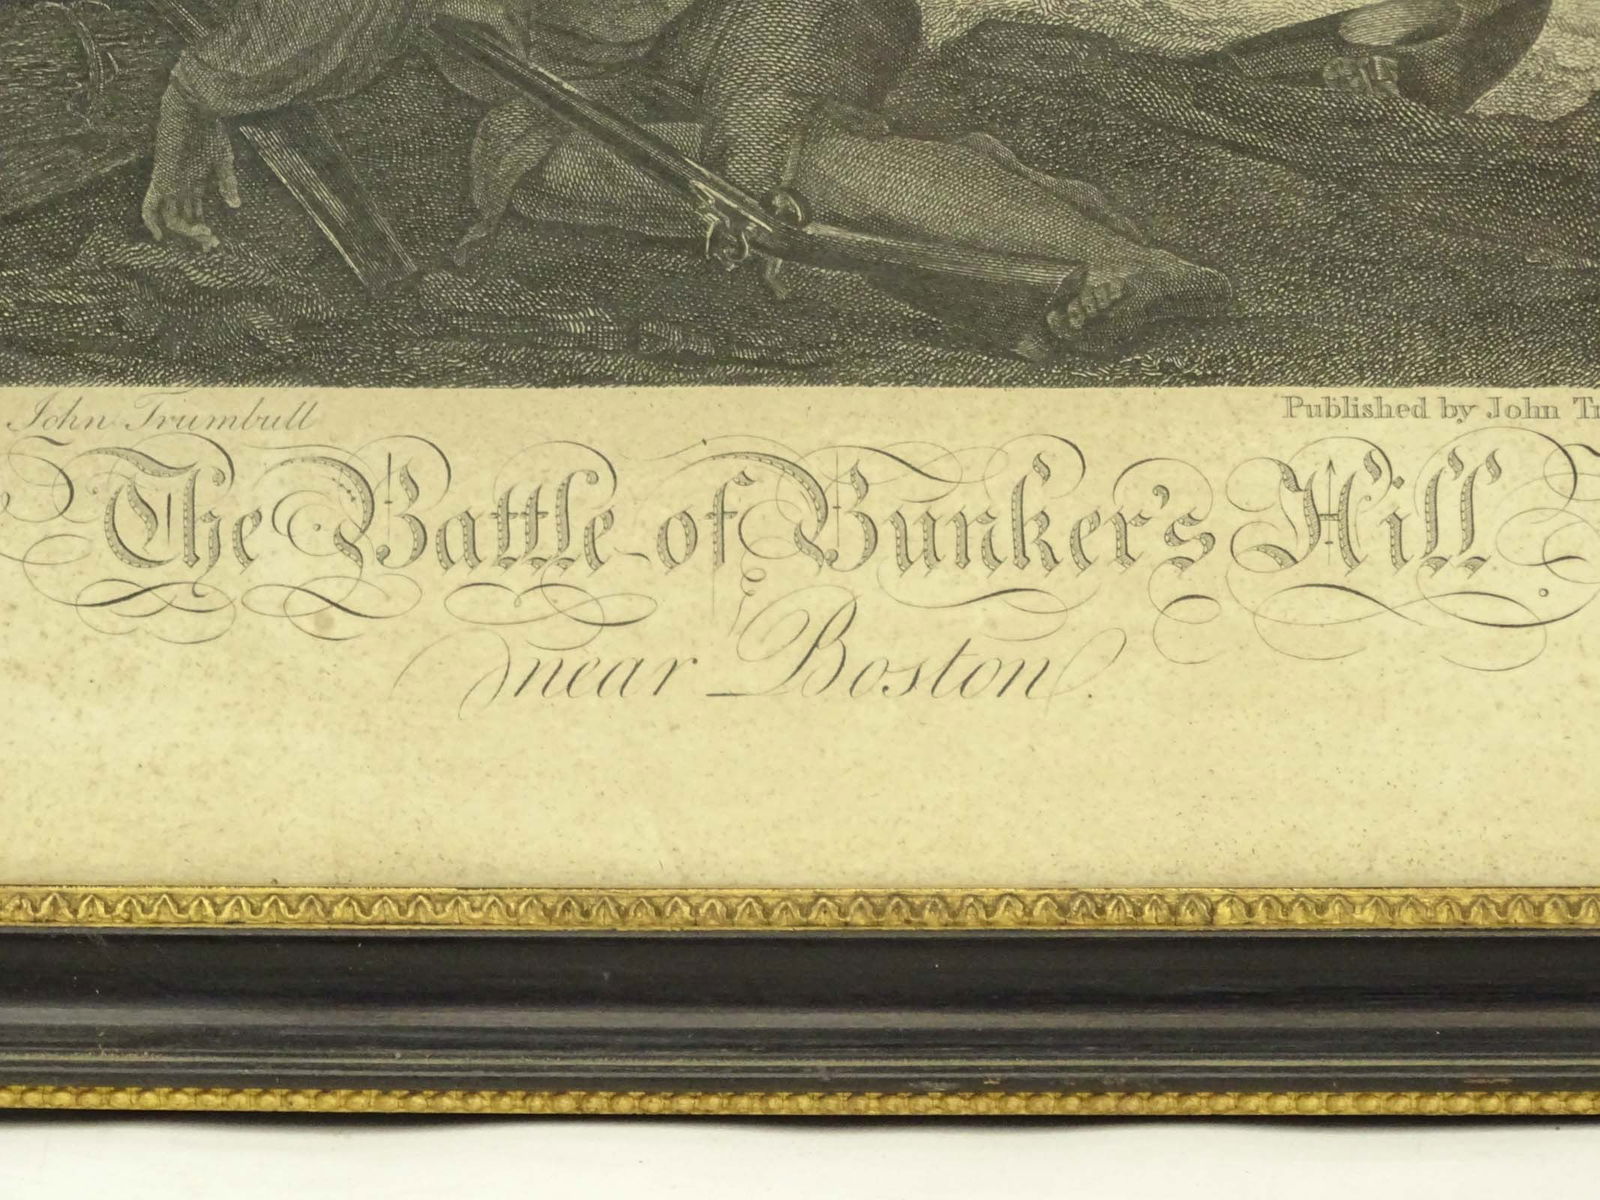 John Trumbull
Published by John Tr
The Battle of Bunker's Hill
near Boston.